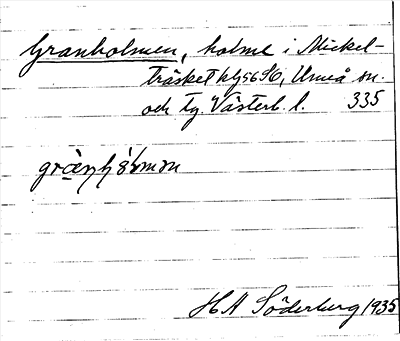 Granholmen, holme i Mickel-
träsket kl 56 H, Umeå sn.
och tg. Västerb. l. 335
H A Söderberg 1935